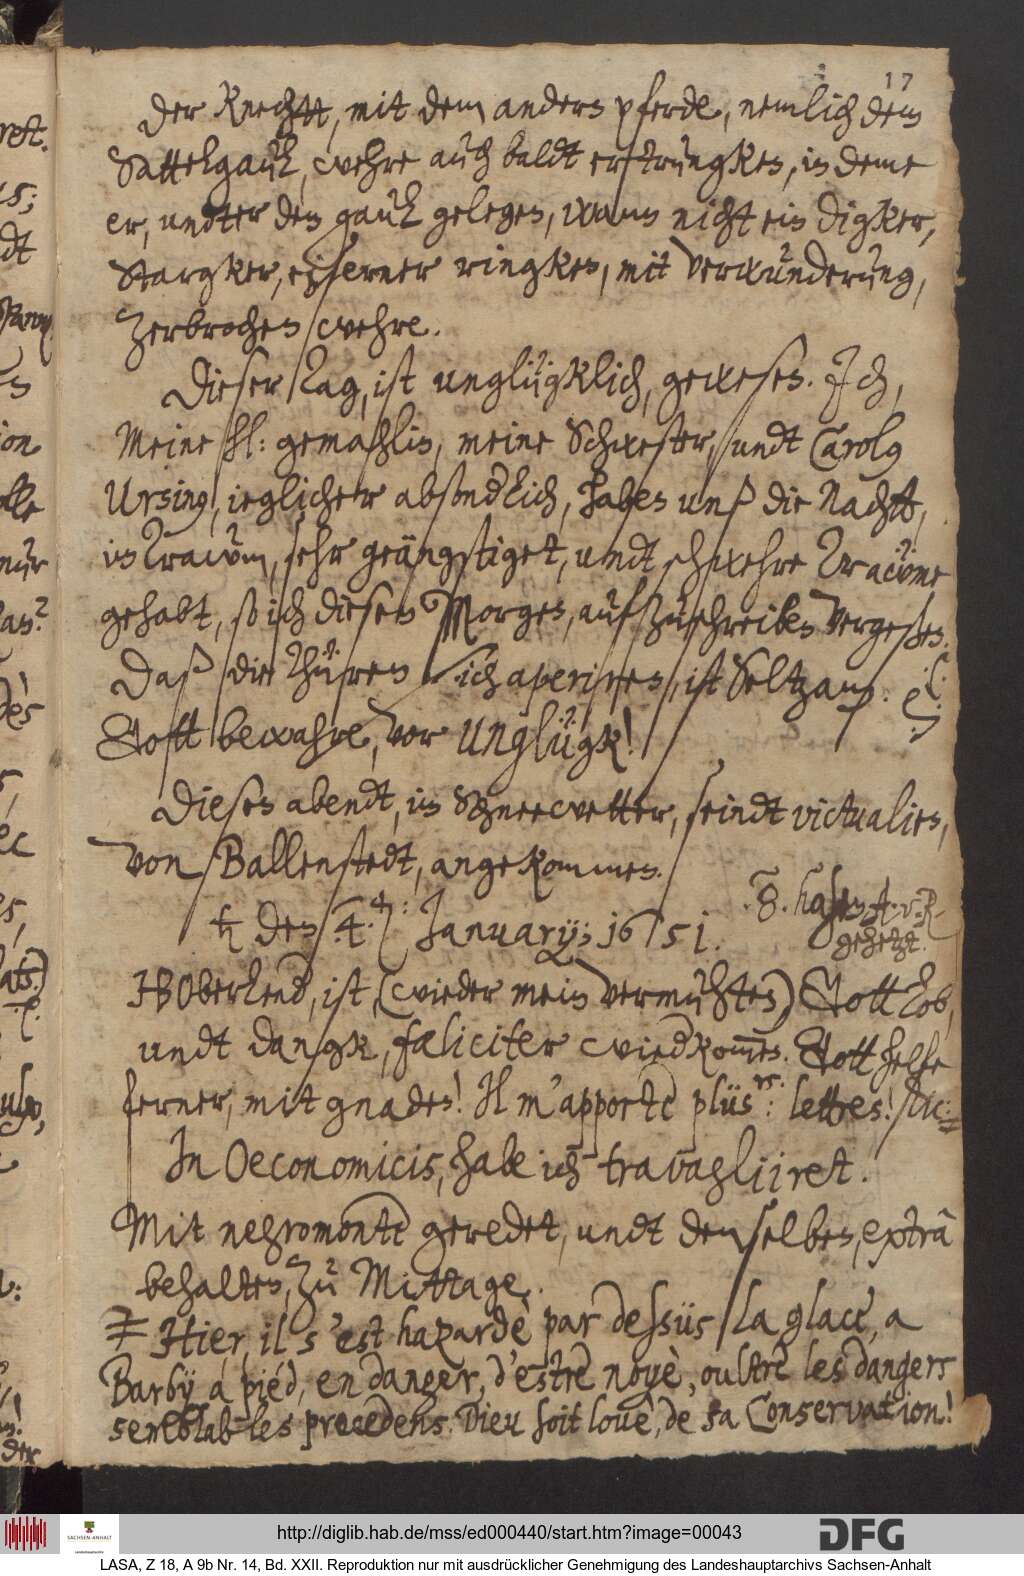 17
der Knechtt, mit dem anderen pferde, nemlich dem
Sattelgaul, wehre auch baldt ertrungken, in deme
er, undter den gaul gelegen, wann nicht ein digker,
Stargker, eyserner ringken, mit verwunderung,
zerbrochen wehre.
Dieser Tag, ist unglügklich, gewesen. Ich,
Meine hl: gemahlin, meine Schwester, undt Carolus
Ursinus, ieglicher absonderlich, haben unß die Nachtt,
in Traum, sehr geängstiget, undt schwehre Traüme
gehabt, so ich diesen Morgen, aufzuschreiben vergeßen.
Daß die Thüren sich aperiren, ist Seltzam.
Gott bewahre, vor unglügk!
Diesen abendt, im Schneewetter, seindt victualien,
von Ballenstedt, angekommen.
♄ den 4. Januarij; 1651.
8. hasen
gehetzt.
HB Oberlend, ist, (wieder mein vermuhten) Gott lob,
undt dangk, fæliciter wiedkommen. Gott helfe
ferner, mit gnaden! Il m'apporte plüsrs: lettres!
In Oeconomicis, habe ich travagliiret.
Mit nehromonte geredet, undt denselben, extrâ
behalten, zu Mittage.
Hier, il s'est hazardè par dessüs la glace, a
Barby a pied, en danger, d'estre noyè, oultre les dangers
semblables precedens. Dieu soit louè, de sa Conservation!
http://diglib.hab.de/mss/ed000440/start.htm?image=00043
SACHSEN-ANHALT
DFG
LASA, Z 18, A 9b Nr. 14, Bd. XXII. Reproduktion nur mit ausdrücklicher Genehmigung des Landeshauptarchivs Sachsen-Anhalt